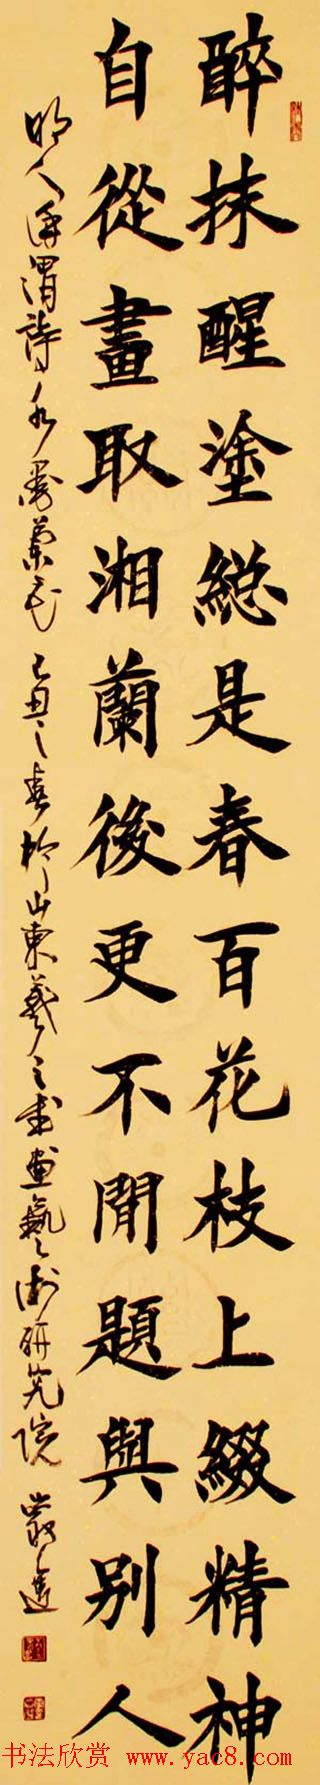 醉抹醒塗総是春百花枝上綴精神
自從畫取湘蘭後更不閒題與別人
明人徐渭詩水墨蘭花 己丑之春於山東羲之書畫藝術研究院 嚴
书法欣赏 www.yac8.com